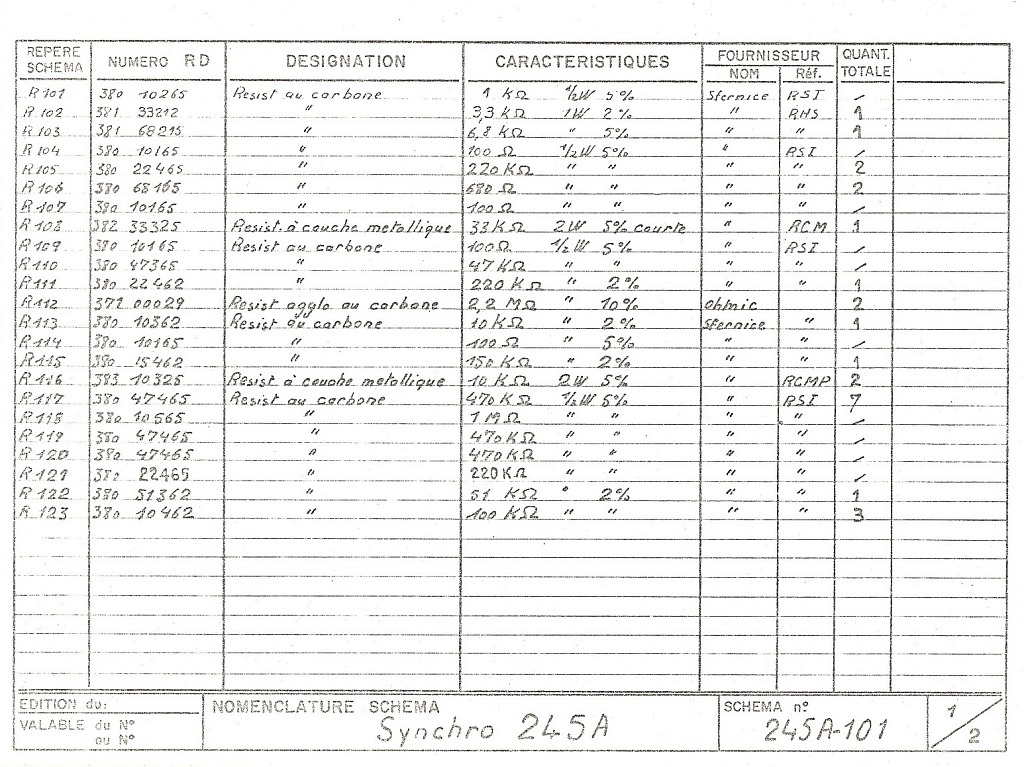 REPERE SCHEMA NUMERO RD DESIGNATION CARACTERISTIQUES FOURNISSEUR NOM Réf. QUANT. TOTALE
R101 380 10265 Resist au carbone 1 KΩ 1/2W 5% Sfernice RSI /
R102 381 33212 " 3,3 KΩ 1W 2% " RHS 1
R103 381 68215 " 6,8 KΩ " 5% " " 1
R104 380 10165 " 100 Ω 1/2W 5% " RSI /
R105 380 22465 " 220 KΩ " " " " 2
R106 380 68165 " 680 Ω " " " " 2
R107 380 10165 " 100 Ω " " " " /
R108 382 33325 Resist. à couche metallique 33 KΩ 2W 5% courte " RCM 1
R109 380 10165 Resist au carbone 100Ω 1/2W 5% " RSI /
R110 380 47365 " 47 KΩ " " " " /
R111 380 22462 " 220 KΩ " 2% " " 1
R112 372 00029 Resist agglo au carbone 2,2 MΩ " 10% Ohmic 2
R113 380 10362 Resist au carbone 10 KΩ " 2% Sfernice " 1
R114 380 10165 " 100 Ω " 5% " " /
R115 380 15462 " 150 KΩ " 2% " " 1
R116 383 10325 Resist à couche metallique 10 KΩ 2W 5% " RCMP 2
R117 380 47465 Resist au carbone 470 KΩ 1/2W 5% " RSI 7
R118 380 10565 " 1 MΩ " " " " /
R119 380 47465 " 470 KΩ " " " " /
R120 380 47465 " 470 KΩ " " " " /
R121 380 22465 " 220 KΩ " " " " /
R122 380 51362 " 51 KΩ " 2% " " 1
R123 380 10462 " 100 KΩ " " " " 3
EDITION du:
VALABLE du N°
ou N°
NOMENCLATURE SCHEMA
Synchro 245A
SCHEMA n°
245A-101
1/2